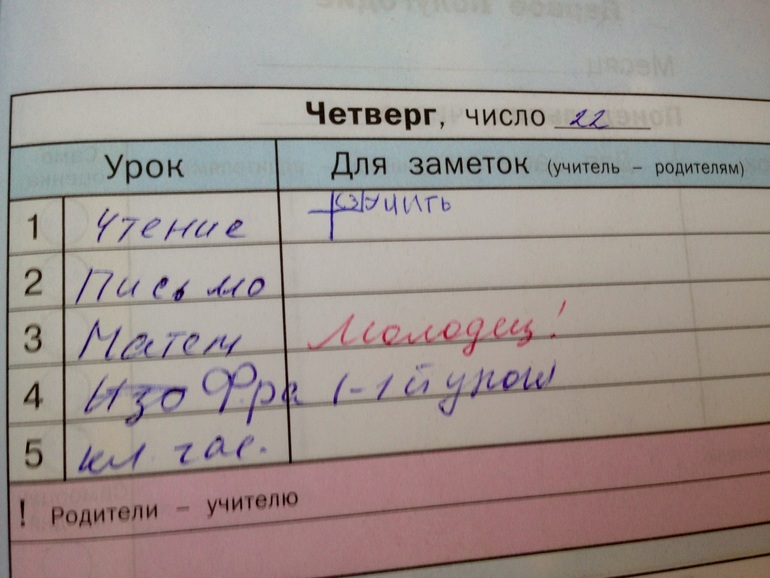 Первое полугодие
Месяц
Четверг, число 22
Урок Для заметок (учитель – родителям)
1 Чтение учить
2 Письмо
3 Матем Молодец!
4 Изо Фра (-1й урок)
5 кл. час.
! Родители – учителю